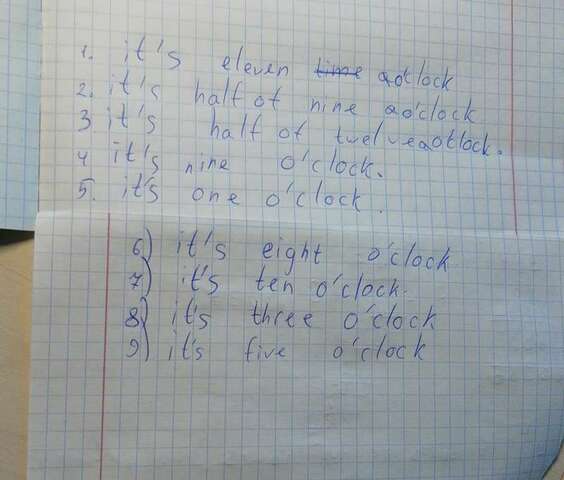 1. it's eleven time ao'clock
2. it's half of nine ao'clock
3 it's half of twelve ao'clock.
4 it's nine o'clock.
5. it's one o'clock.
6) it's eight o'clock
7) it's ten o'clock.
8) it's three o'clock
9) it's five o'clock